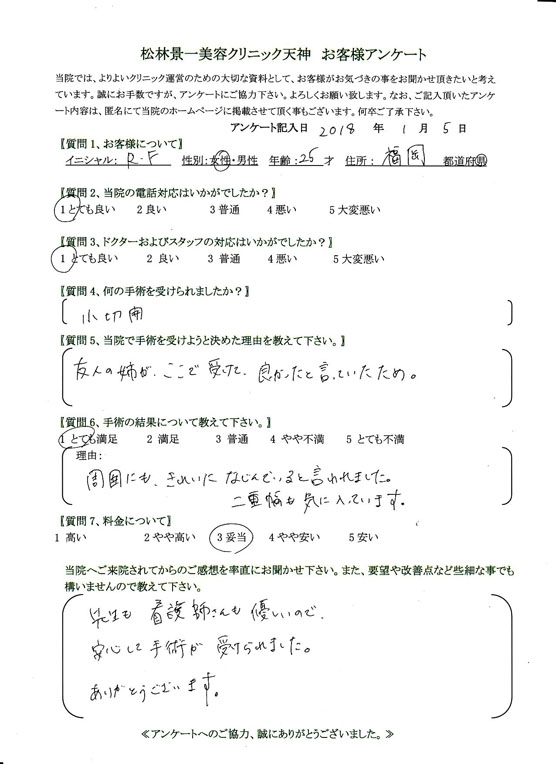 松林景一美容クリニック天神　お客様アンケート
当院では、よりよいクリニック運営のための大切な資料として、お客様がお気づきの事をお聞かせ頂きたいと考え
ています。誠にお手数ですが、アンケートにご協力下さい。よろしくお願い致します。なお、ご記入頂いたアンケ
ート内容は、匿名にて当院のホームページに掲載させて頂く事もございます。何卒ご了承下さい。
アンケート記入日 2018 年 1 月 5 日
【質問1、お客様について】
イニシャル： R.F 性別：女性・男性 年齢：25才 住所： 福岡 都道府県
【質問2、当院の電話対応はいかがでしたか？】
1 とても良い 2 良い 3 普通 4 悪い 5 大変悪い
【質問3、ドクターおよびスタッフの対応はいかがでしたか？】
1 とても良い 2 良い 3 普通 4 悪い 5 大変悪い
【質問4、何の手術を受けられましたか？】
小切開
【質問5、当院で手術を受けようと決めた理由を教えて下さい。】
友人の姉が、ここで受けて、良かったと言っていたため。
【質問6、手術の結果について教えて下さい。】
1 とても満足 2 満足 3 普通 4 やや不満 5 とても不満
理由：
周囲にも、きれいになじんでいると言われました。
二重幅も気に入っています。
【質問7、料金について】
1 高い 2 やや高い 3 妥当 4 やや安い 5 安い
当院へご来院されてからのご感想を率直にお聞かせ下さい。また、要望や改善点など些細な事でも
構いませんので教えて下さい。
先生も看護師さんも優しいので、
安心して手術が受けられました。
ありがとうございます。
≪アンケートへのご協力、誠にありがとうございました。≫